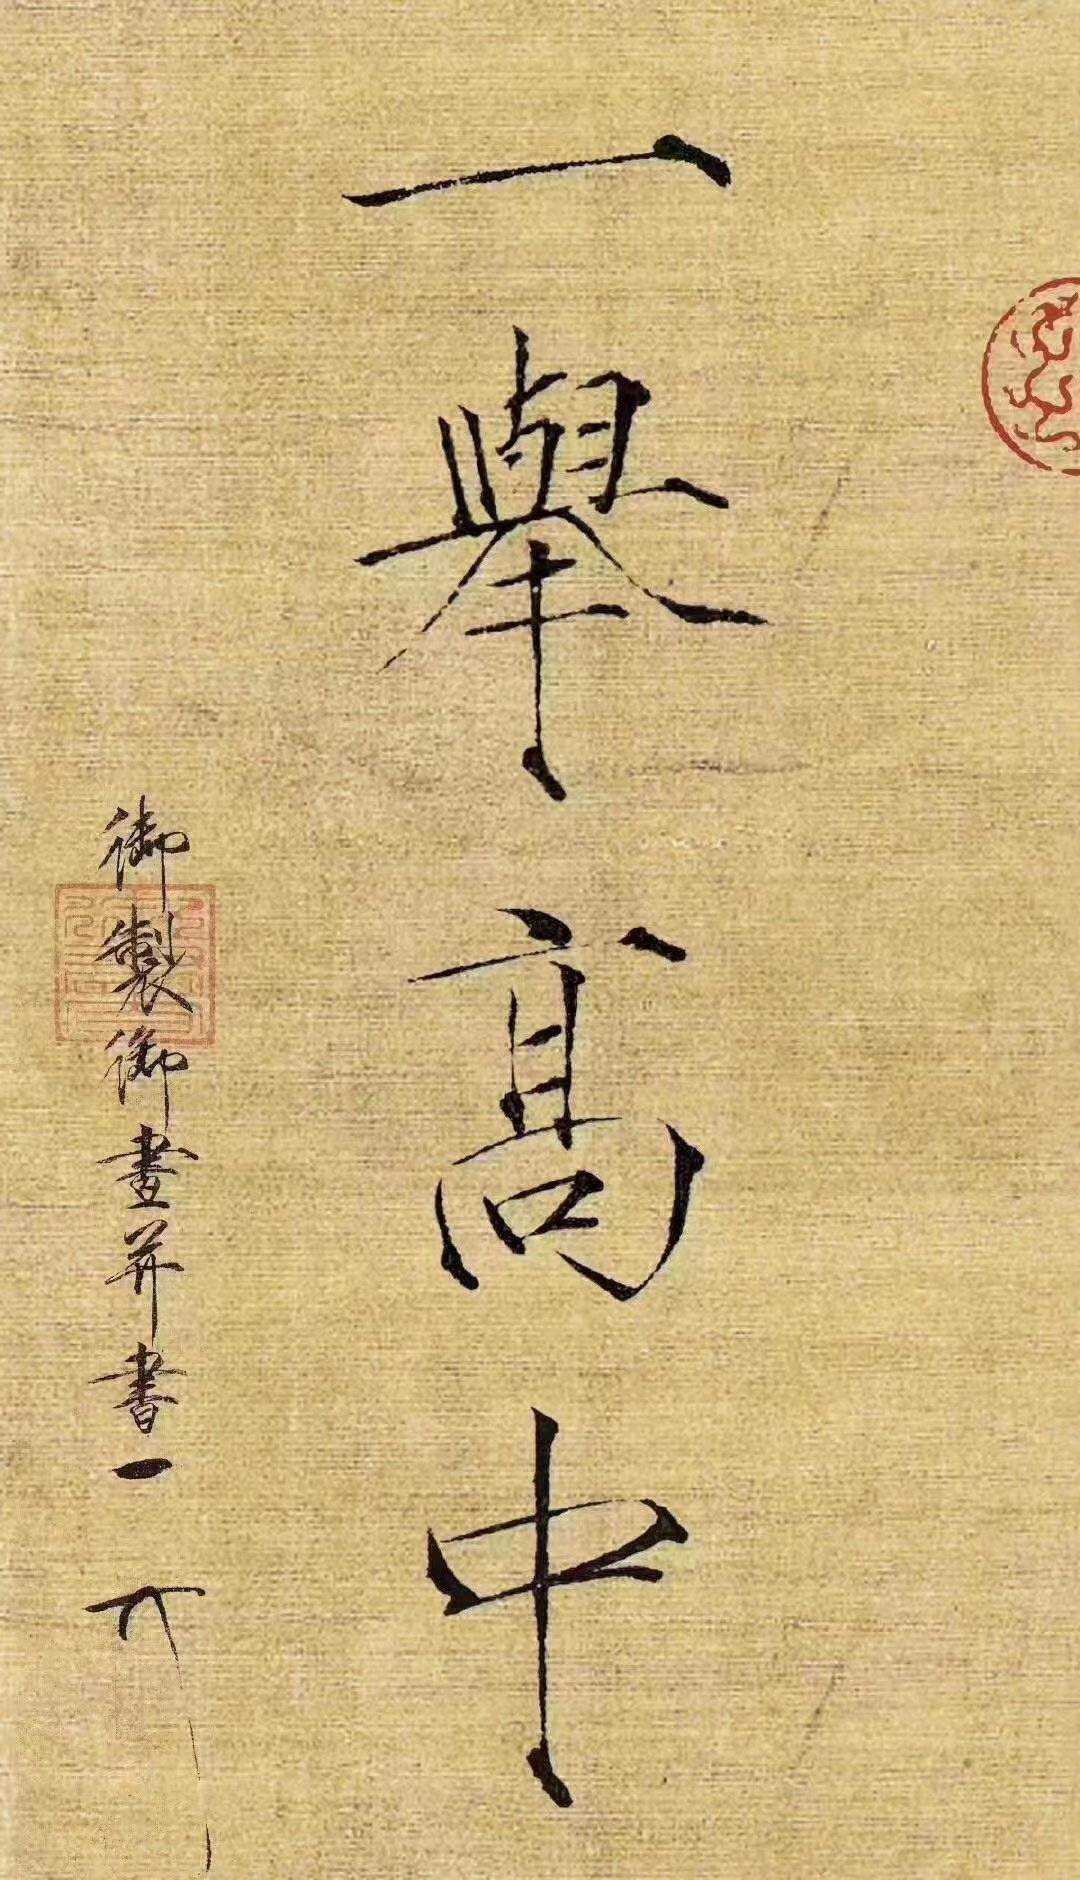 一舉高中
御製御畫并書